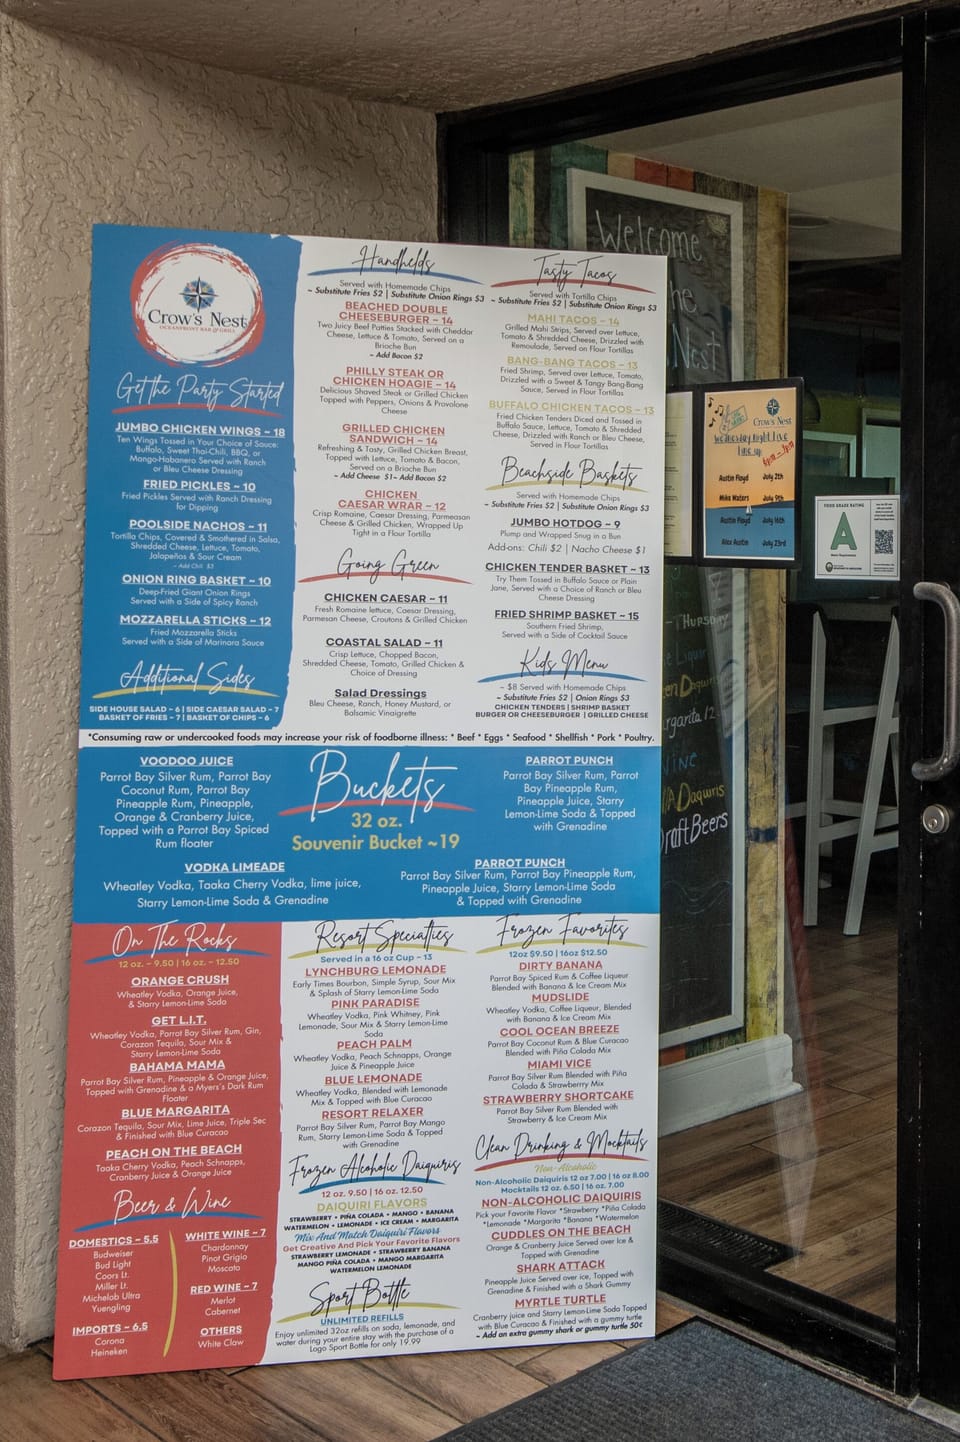 Crow's Nest
OCEANFRONT BAR & GRILL
Get the Party Started
JUMBO CHICKEN WINGS ~ 18
Ten Wings Tossed in Your Choice of Sauce:
Buffalo, Sweet Thai-Chili, BBQ, or
Mango-Habanero Served with Ranch
or Bleu Cheese Dressing
FRIED PICKLES ~ 10
Fried Pickles Served with Ranch Dressing
for Dipping
POOLSIDE NACHOS ~ 11
Tortilla Chips, Covered & Smothered in Salsa,
Shredded Cheese, Lettuce, Tomato,
Jalapeños & Sour Cream
~ Add Chili $3
ONION RING BASKET ~ 10
Deep-Fried Giant Onion Rings
Served with a Side of Spicy Ranch
MOZZARELLA STICKS ~ 12
Fried Mozzarella Sticks
Served with a Side of Marinara Sauce
Additional Sides
SIDE HOUSE SALAD ~ 6 | SIDE CAESAR SALAD ~ 7
BASKET OF FRIES ~ 7 | BASKET OF CHIPS ~ 6
Handhelds
Served with Homemade Chips
~ Substitute Fries $2 | Substitute Onion Rings $3
BEACHED DOUBLE
CHEESEBURGER ~ 14
Two Juicy Beef Patties Stacked with Cheddar
Cheese, Lettuce & Tomato, Served on a
Brioche Bun
~ Add Bacon $2
PHILLY STEAK OR
CHICKEN HOAGIE ~ 14
Delicious Shaved Steak or Grilled Chicken
Topped with Peppers, Onions & Provalone
Cheese
GRILLED CHICKEN
SANDWICH ~ 14
Refreshing & Tasty, Grilled Chicken Breast,
Topped with Lettuce, Tomato & Bacon,
Served on a Brioche Bun
~ Add Cheese $1 ~ Add Bacon $2
CHICKEN
CAESAR WRAP ~ 12
Crisp Romaine, Caesar Dressing, Parmeasan
Cheese & Grilled Chicken, Wrapped Up
Tight in a Flour Tortilla
Going Green
CHICKEN CAESAR ~ 11
Fresh Romaine lettuce, Caesar Dressing,
Parmesan Cheese, Croutons & Grilled Chicken
COASTAL SALAD ~ 11
Crisp Lettuce, Chopped Bacon,
Shredded Cheese, Tomato, Grilled Chicken &
Choice of Dressing
Salad Dressings
Bleu Cheese, Ranch, Honey Mustard, or
Balsamic Vinaigrette
Tasty Tacos
Served with Tortilla Chips
~ Substitute Fries $2 | Substitute Onion Rings $3
MAHI TACOS ~ 14
Grilled Mahi Strips, Served over Lettuce,
Tomato & Shredded Cheese, Drizzled with
Remoulade, Served on Flour Tortillas
BANG-BANG TACOS ~ 13
Fried Shrimp, Served over Lettuce, Tomato,
Drizzled with a Sweet & Tangy Bang-Bang
Sauce, Served in Flour Tortillas
BUFFALO CHICKEN TACOS ~ 13
Fried Chicken Tenders Diced and Tossed in
Buffalo Sauce, Lettuce, Tomato & Shredded
Cheese, Drizzled with Ranch or Bleu Cheese,
Served in Flour Tortillas
Beachside Baskets
Served with Homemade Chips
~ Substitute Fries $2 | Substitute Onion Rings $3
JUMBO HOTDOG ~ 9
Plump and Wrapped Snug in a Bun
Add-ons: Chili $2 | Nacho Cheese $1
CHICKEN TENDER BASKET ~ 13
Try Them Tossed in Buffalo Sauce or Plain
Jane, Served with a Choice of Ranch or Bleu
Cheese Dressing
FRIED SHRIMP BASKET ~ 15
Southern Fried Shrimp,
Served with a Side of Cocktail Sauce
Kids Menu
~ $8 Served with Homemade Chips
~ Substitute Fries $2 | Onion Rings $3
CHICKEN TENDERS | SHRIMP BASKET
BURGER OR CHEESEBURGER | GRILLED CHEESE
*Consuming raw or undercooked foods may increase your risk of foodborne illness: * Beef * Eggs * Seafood * Shellfish * Pork * Poultry.
VOODOO JUICE
Parrot Bay Silver Rum, Parrot Bay
Coconut Rum, Parrot Bay
Pineapple Rum, Pineapple,
Orange & Cranberry Juice,
Topped with a Parrot Bay Spiced
Rum floater
Buckets
32 oz.
Souvenir Bucket ~19
PARROT PUNCH
Parrot Bay Silver Rum, Parrot
Bay Pineapple Rum,
Pineapple Juice, Starry
Lemon-Lime Soda & Topped
with Grenadine
VODKA LIMEADE
Wheatley Vodka, Taaka Cherry Vodka, lime juice,
Starry Lemon-Lime Soda & Grenadine
PARROT PUNCH
Parrot Bay Silver Rum, Parrot Bay Pineapple Rum,
Pineapple Juice, Starry Lemon-Lime Soda
& Topped with Grenadine
On The Rocks
12 oz. ~ 9.50 | 16 oz. ~ 12.50
ORANGE CRUSH
Wheatley Vodka, Orange Juice,
& Starry Lemon-Lime Soda
GET L.I.T.
Wheatley Vodka, Parrot Bay Silver Rum, Gin,
Corazon Tequila, Sour Mix &
Starry Lemon-Lime Soda
BAHAMA MAMA
Parrot Bay Silver Rum, Pineapple & Orange Juice,
Topped with Grenadine & a Myers's Dark Rum
Floater
BLUE MARGARITA
Corazon Tequila, Sour Mix, Lime Juice, Triple Sec
& Finished with Blue Curacao
PEACH ON THE BEACH
Taaka Cherry Vodka, Peach Schnapps,
Cranberry Juice & Orange Juice
Beer & Wine
DOMESTICS ~ 5.5
Budweiser
Bud Light
Coors Lt.
Miller Lt.
Michelob Ultra
Yuengling
IMPORTS ~ 6.5
Corona
Heineken
WHITE WINE ~ 7
Chardonnay
Pinot Grigio
Moscato
RED WINE ~ 7
Merlot
Cabernet
OTHERS
White Claw
Resort Specialties
Served in a 16 oz Cup ~ 13
LYNCHBURG LEMONADE
Early Times Bourbon, Simple Syrup, Sour Mix
& Splash of Starry Lemon-Lime Soda
PINK PARADISE
Wheatley Vodka, Pink Whitney, Pink
Lemonade, Sour Mix & Starry Lemon-Lime
Soda
PEACH PALM
Wheatley Vodka, Peach Schnapps, Orange
Juice & Pineapple Juice
BLUE LEMONADE
Wheatley Vodka, Blended with Lemonade
Mix & Topped with Blue Curacao
RESORT RELAXER
Parrot Bay Silver Rum, Parrot Bay Mango
Rum, Starry Lemon-Lime Soda & Topped
with Grenadine
Frozen Alcoholic Daiquiris
12 oz. 9.50 | 16 oz. 12.50
DAIQUIRI FLAVORS
STRAWBERRY • PIÑA COLADA • MANGO • BANANA
WATERMELON • LEMONADE • ICE CREAM • MARGARITA
Mix And Match Daiquiri Flavors
Get Creative And Pick Your Favorite Flavors
STRAWBERRY LEMONADE • STRAWBERRY BANANA
MANGO PIÑA COLADA • MANGO MARGARITA
WATERMELON LEMONADE
Sport Bottle
UNLIMITED REFILLS
Enjoy unlimited 32oz refills on soda, lemonade, and
water during your entire stay with the purchase of a
Logo Sport Bottle for only 19.99
Frozen Favorites
12oz $9.50 | 16oz $12.50
DIRTY BANANA
Parrot Bay Spiced Rum & Coffee Liqueur
Blended with Banana & Ice Cream Mix
MUDSLIDE
Wheatley Vodka, Coffee Liqueur, Blended
with Banana & Ice Cream Mix
COOL OCEAN BREEZE
Parrot Bay Coconut Rum & Blue Curacao
Blended with Piña Colada Mix
MIAMI VICE
Parrot Bay Silver Rum Blended with Piña
Colada & Strawberry Mix
STRAWBERRY SHORTCAKE
Parrot Bay Silver Rum Blended with
Strawberry & Ice Cream Mix
Clean Drinking & Mocktails
Non-Alcoholic
Non-Alcoholic Daiquiris 12 oz 7.00 | 16 oz 8.00
Mocktails 12 oz. 6.50 | 16 oz. 7.00
NON-ALCOHOLIC DAIQUIRIS
Pick your Favorite Flavor *Strawberry *Piña Colada
*Lemonade *Margarita *Banana *Watermelon
CUDDLES ON THE BEACH
Orange & Cranberry Juice Served over Ice &
Topped with Grenadine
SHARK ATTACK
Pineapple Juice Served over ice, Topped with
Grenadine & Finished with a Shark Gummy
MYRTLE TURTLE
Cranberry juice and Starry Lemon-Lime Soda Topped
with Blue Curacao & Finished with a gummy turtle
~ Add an extra gummy shark or gummy turtle 50¢
Welcome
Nest
Crow's Nest
Wednesday night Live
line up
Austin Floyd July 2th
Mike Waters July 9th
Austin Floyd July 16th
Alex Austin July 23rd
FOOD GRADE RATING
A
THURSDAY
Liquir
Daquiris
12
Wine
N/A Daquiris
Draft Beers